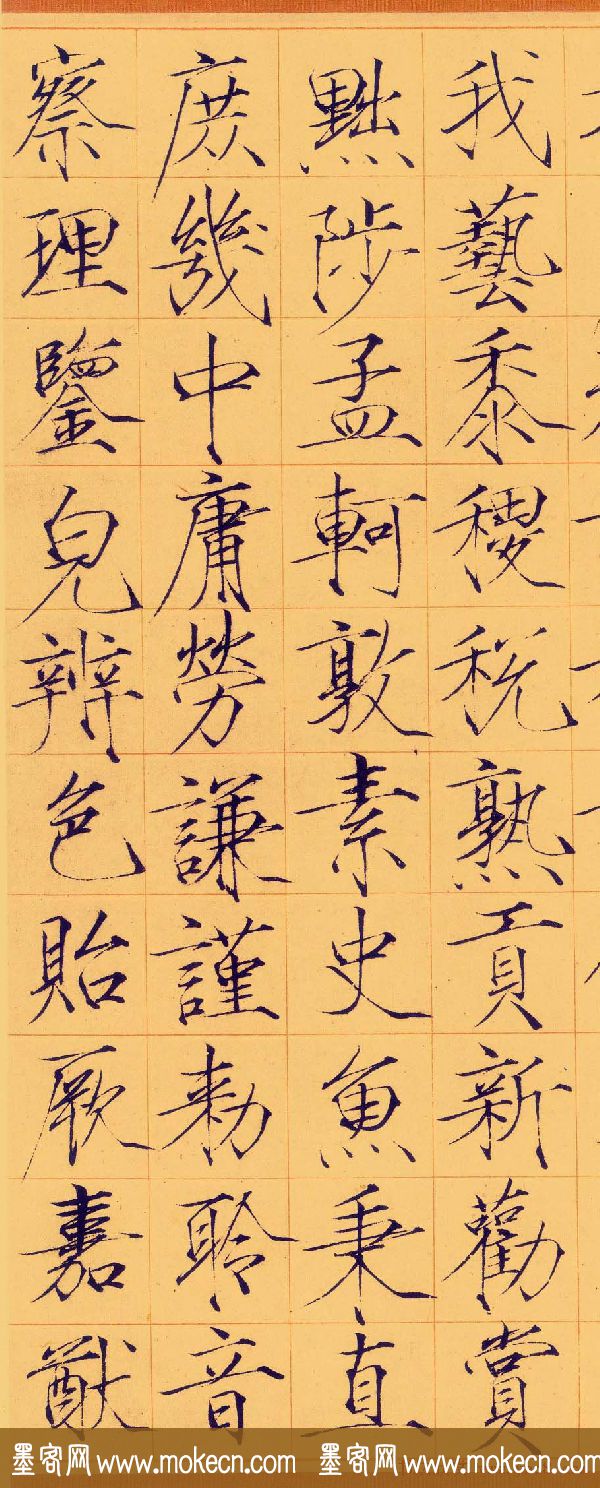 我藝黍稷稅熟貢新勸賞
黜陟孟軻敦素史魚秉直
庶幾中庸勞謙謹勅聆音
察理鑒皃辨色貽厥嘉猷
墨客网 www.mokecn.com 墨客网 www.mokecn.com